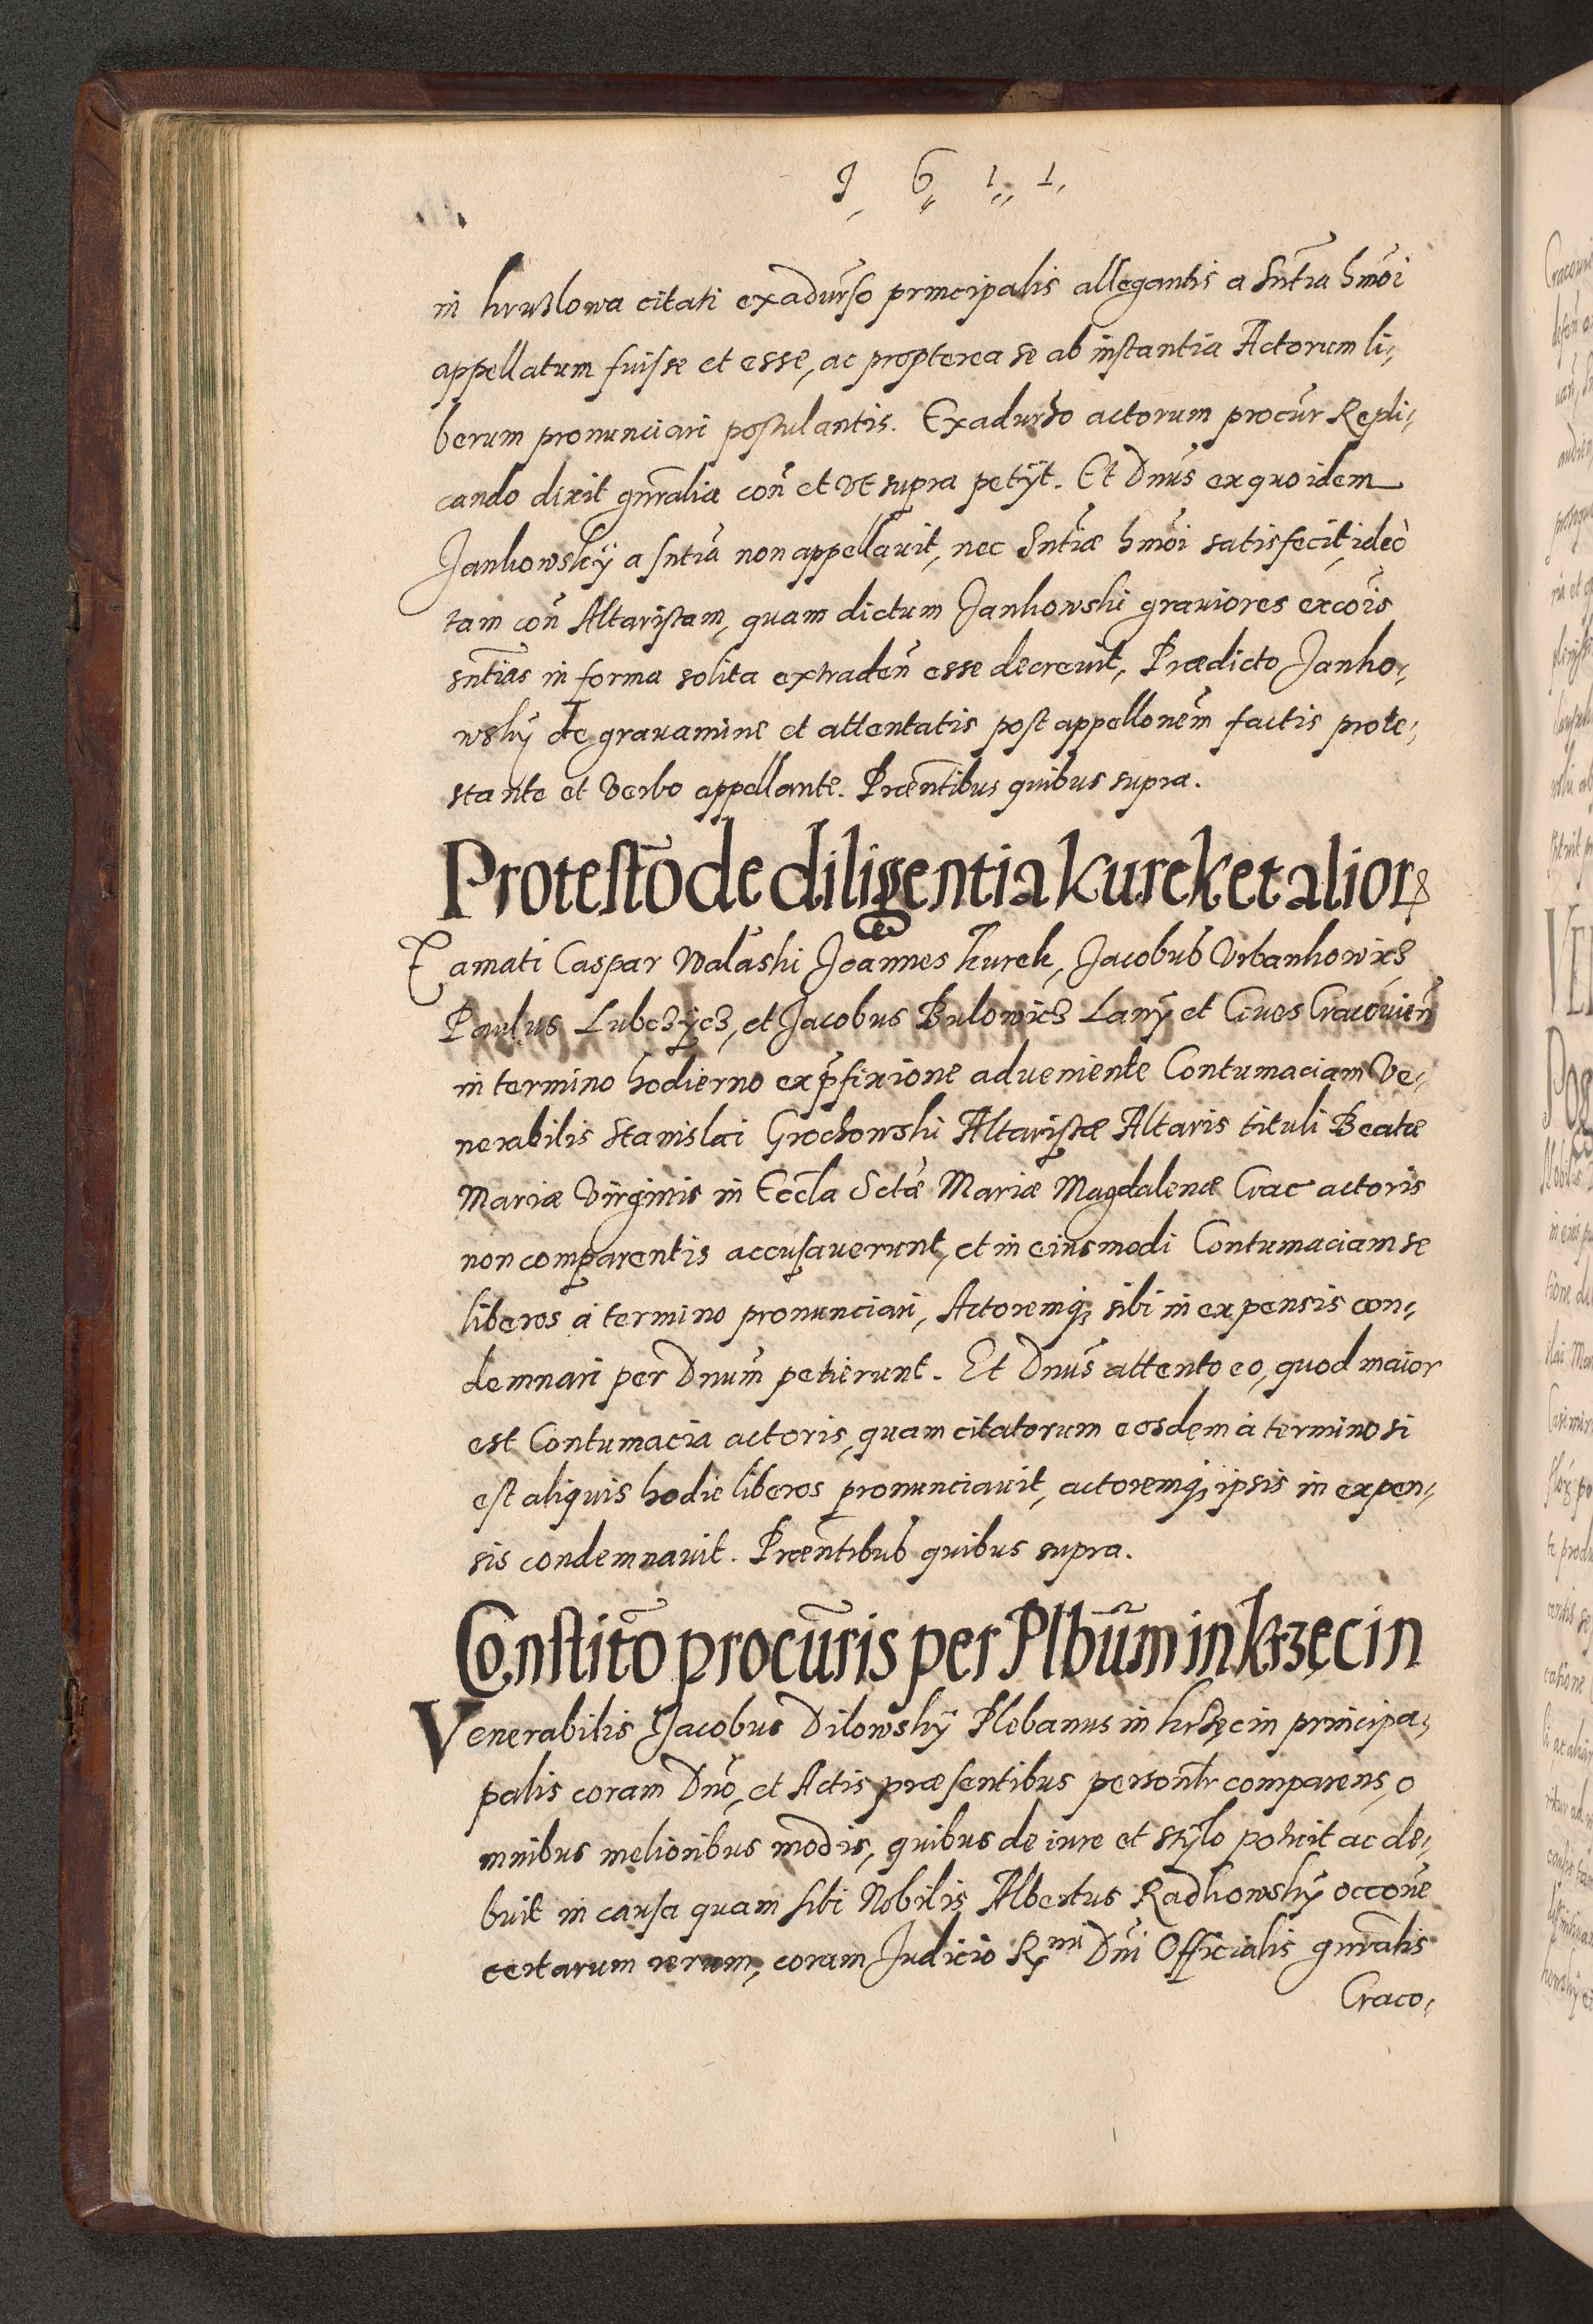 1 6 1 1
in kruzlowa citati exadurso principalis allegantis a Sntia hmoi
appellatum fuisse et esse, ac propterea se ab instantia Actorum li,
berum pronunciari postulantis. Exadurso actorum procur Repli,
cando dixit gnralia con et vt supra petÿt. Et Dnus ex quo idem
Jankowskÿ a sntia non appellauit, nec Sntiæ hmoi satisfecit, ideò
tam con Altaristam, quam dictum Jankowski grauiores excois
sntias in forma solita extraden esse decreuit, Prædicto Janko,
wskÿ de grauamine et attentatis post appellonem factis prote,
stante et verbo appellante. Præntibus quibus supra.
Protesto de diligentia kurek et alior
Famati Caspar Walaski Joannes kurek, Jacobus Vrbankowicz
Paulus Lubczÿcz, et Jacobus Bulowicz Lanÿ et Ciues Cracouien
in termino hodierno ex pfixione adueniente Contumaciam Ve,
nerabilis Stanislai Grochowski Altaristæ Altaris tituli Beatæ
Mariæ Virginis in Eccla Sctæ Mariæ Magdalenæ Crac actoris
non comparentis accusauerunt, et in eiusmodi Contumaciam se
liberos à termino pronunciari, Actoremq; sibi in expensis con,
demnari per Dnum petierunt. Et Dnus attento eo, quod maior
est Contumacia actoris, quam citatorum eosdem à termino si
est aliquis hodie liberos pronunciauit, actoremq; ipsis in expen,
sis condemnauit. Præntibus quibus supra.
Constito procuris per Plbum in krzęcin
Venerabilis Jacobus Dilowskÿ Plebanus in krzęcin principa,
palis coram Dno, et Actis præsentibus personlr comparens, o
mnibus melioribus modis, quibus de iure et stÿlo potuit ac de,
buit in causa quam sibi Nobilis Albertus Radkowskÿ occone
certarum rerum, coram Judicio Rmi Dni Officialis gnralis
Craco,